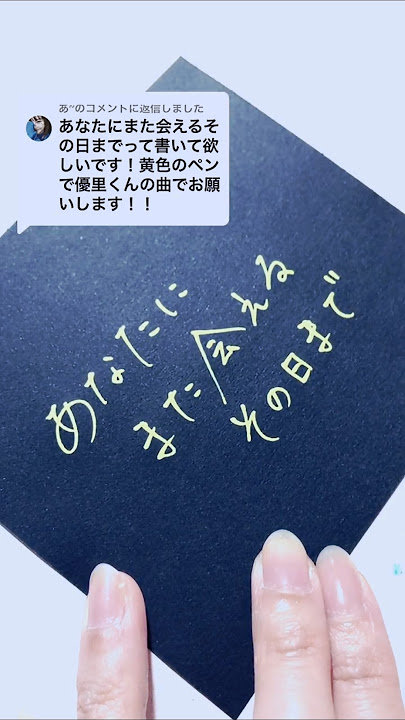 あ~のコメントに返信しました
あなたにまた会えるそ
の日までって書いて欲
しいです！黄色のペン
で優里くんの曲でお願
いします！！
あなたに
また会える
その日まで